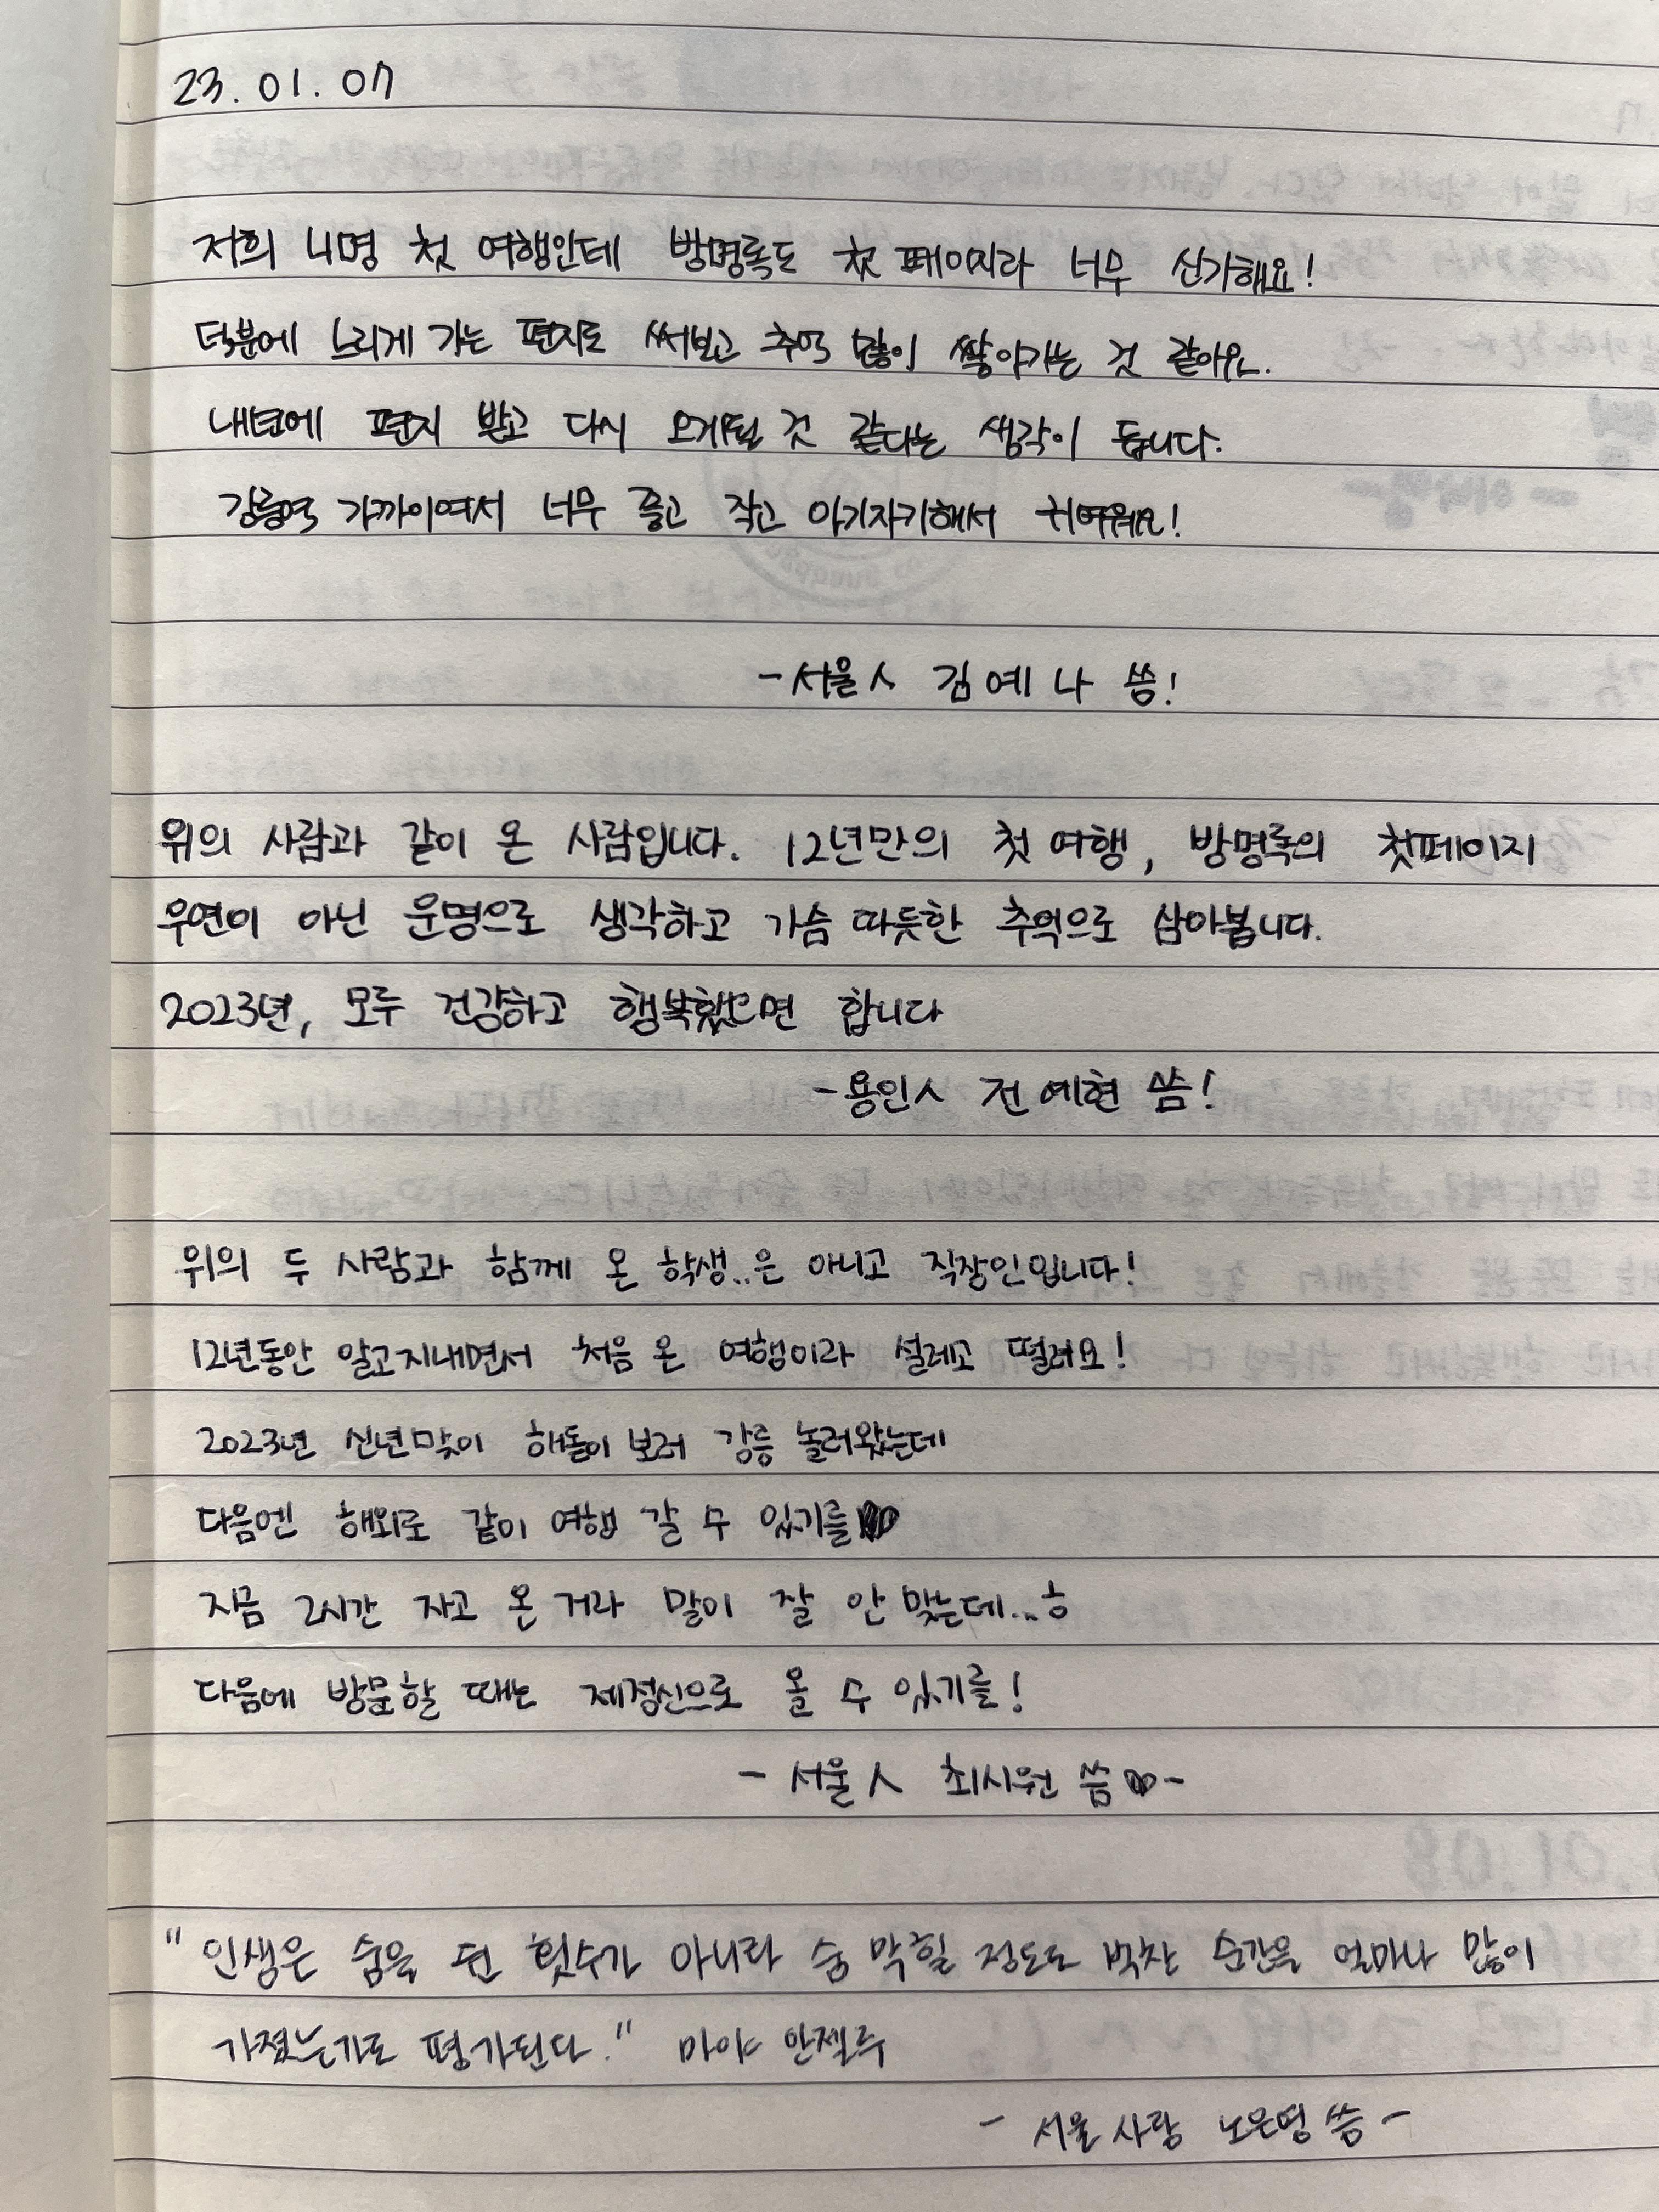 23. 01. 07
저희 4명 첫 여행인데 방명록도 첫 페이지라 너무 신기해요!
덕분에 느리게 가는 편지도 써보고 추억 많이 쌓아가는 것 같아요.
내년에 편지 받고 다시 오게될 것 같다는 생각이 듭니다.
강릉역 가까이여서 너무 좋고 작고 아기자기해서 귀여워요!
-서울人 김예나 씀!
위의 사람과 같이 온 사람입니다. 12년만의 첫 여행, 방명록의 첫페이지
우연이 아닌 운명으로 생각하고 가슴 따듯한 추억으로 삼아봅니다.
2023년, 모두 건강하고 행복했으면 합니다
-용인人 전예현 씀!
위의 두 사람과 함께 온 학생..은 아니고 직장인입니다!
12년동안 알고지내면서 처음 온 여행이라 설레고 떨려요!
2023년 신년맞이 해돋이 보러 강릉 놀러왔는데
다음엔 해외로 같이 여행 갈 수 있기를
지금 2시간 자고 온 거라 말이 잘 안 맞는데...ㅎ
다음에 방문할 때는 제정신으로 올 수 있기를!
- 서울人 최시원 씀 -
"인생은 숨을 쉰 횟수가 아니라 숨 막힐 정도로 벅찬 순간을 얼마나 많이
가졌는가로 평가된다." 마야 안젤루
- 서울사람 노은영 씀 -